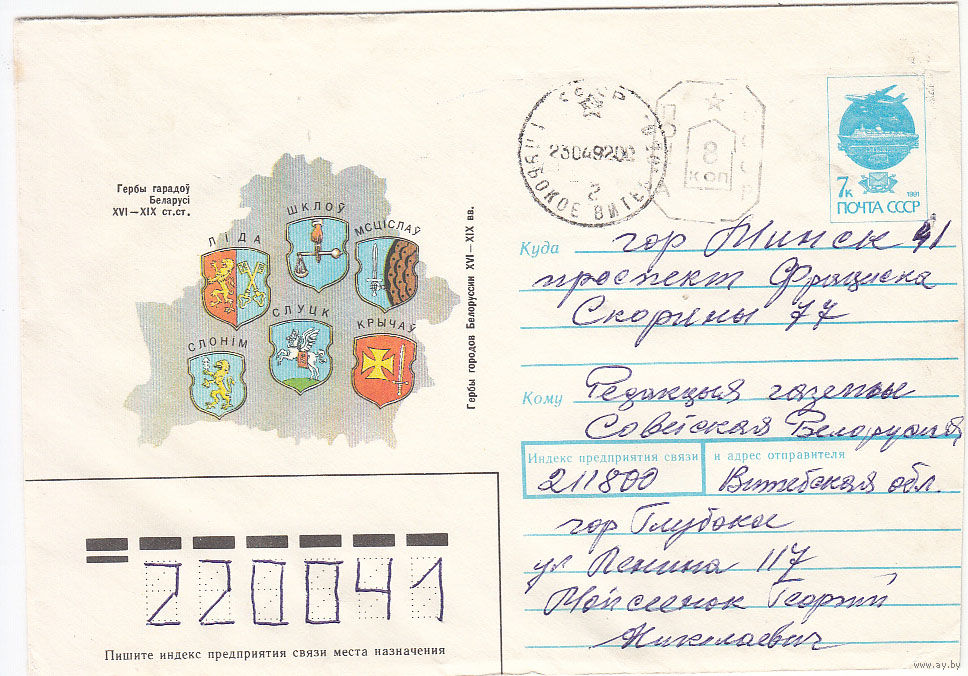 Гербы гарадоў
Беларусі
XVI—XIX ст.ст.
ЛІДА
ШКЛОЎ
МСЦІСЛАЎ
СЛОНІМ
СЛУЦК
КРЫЧАЎ
Гербы городов Белоруссии XVI—XIX вв.
СССР
23049200
ГЛУБОКОЕ ВИТЕБ
2
8
КОП
7к
1991
ПОЧТА СССР
Куда гор Минск 41
проспект Франциска
Скорины 77
Кому Редакция газеты
Советская Белоруссия
Индекс предприятия связи и адрес отправителя
211800 Витебская обл.
гор Глубокое
ул Ленина 117
Георгий
Николаевич
220041
Пишите индекс предприятия связи места назначения
www.ay.by